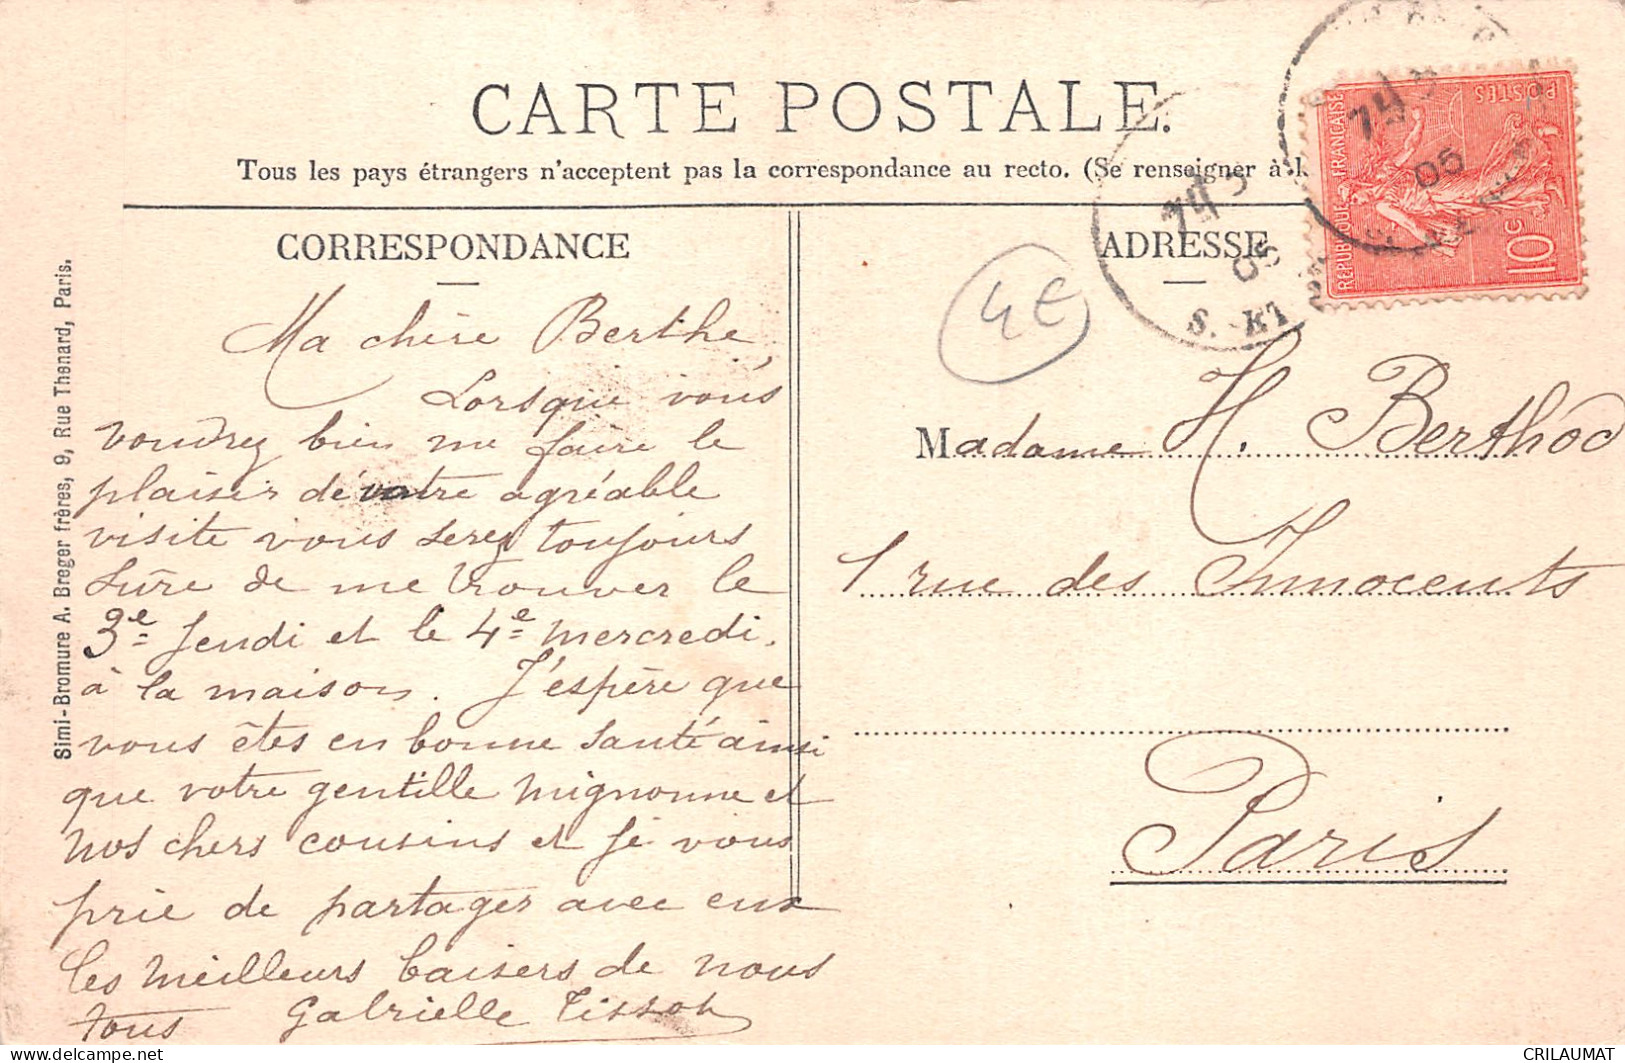 CARTE POSTALE.
Tous les pays étrangers n'acceptent pas la correspondance au recto. (Se renseigner à l
CORRESPONDANCE
Ma chère Berthe,
Lorsque vous
voudrez bien me faire le
plaisir de votre agréable
visite vous serez toujours
sûre de me trouver le
3e Jeudi et le 4e mercredi.
à la maison. J'espère que
vous êtes en bonne santé ainsi
que votre gentille mignonne et
nos chers cousins et je vous
prie de partager avec eux
les meilleurs baisers de nous
tous Gabrielle Tissot
ADRESSE
4€
Madame H. Berthod
1 rue des Innocents
Paris
REPUBLIQUE FRANCAISE
POSTES
10c
74
05
74
05
S.
Simi-Bromure A. Breger frères, 9, Rue Thenard, Paris.
CRILAUMAT